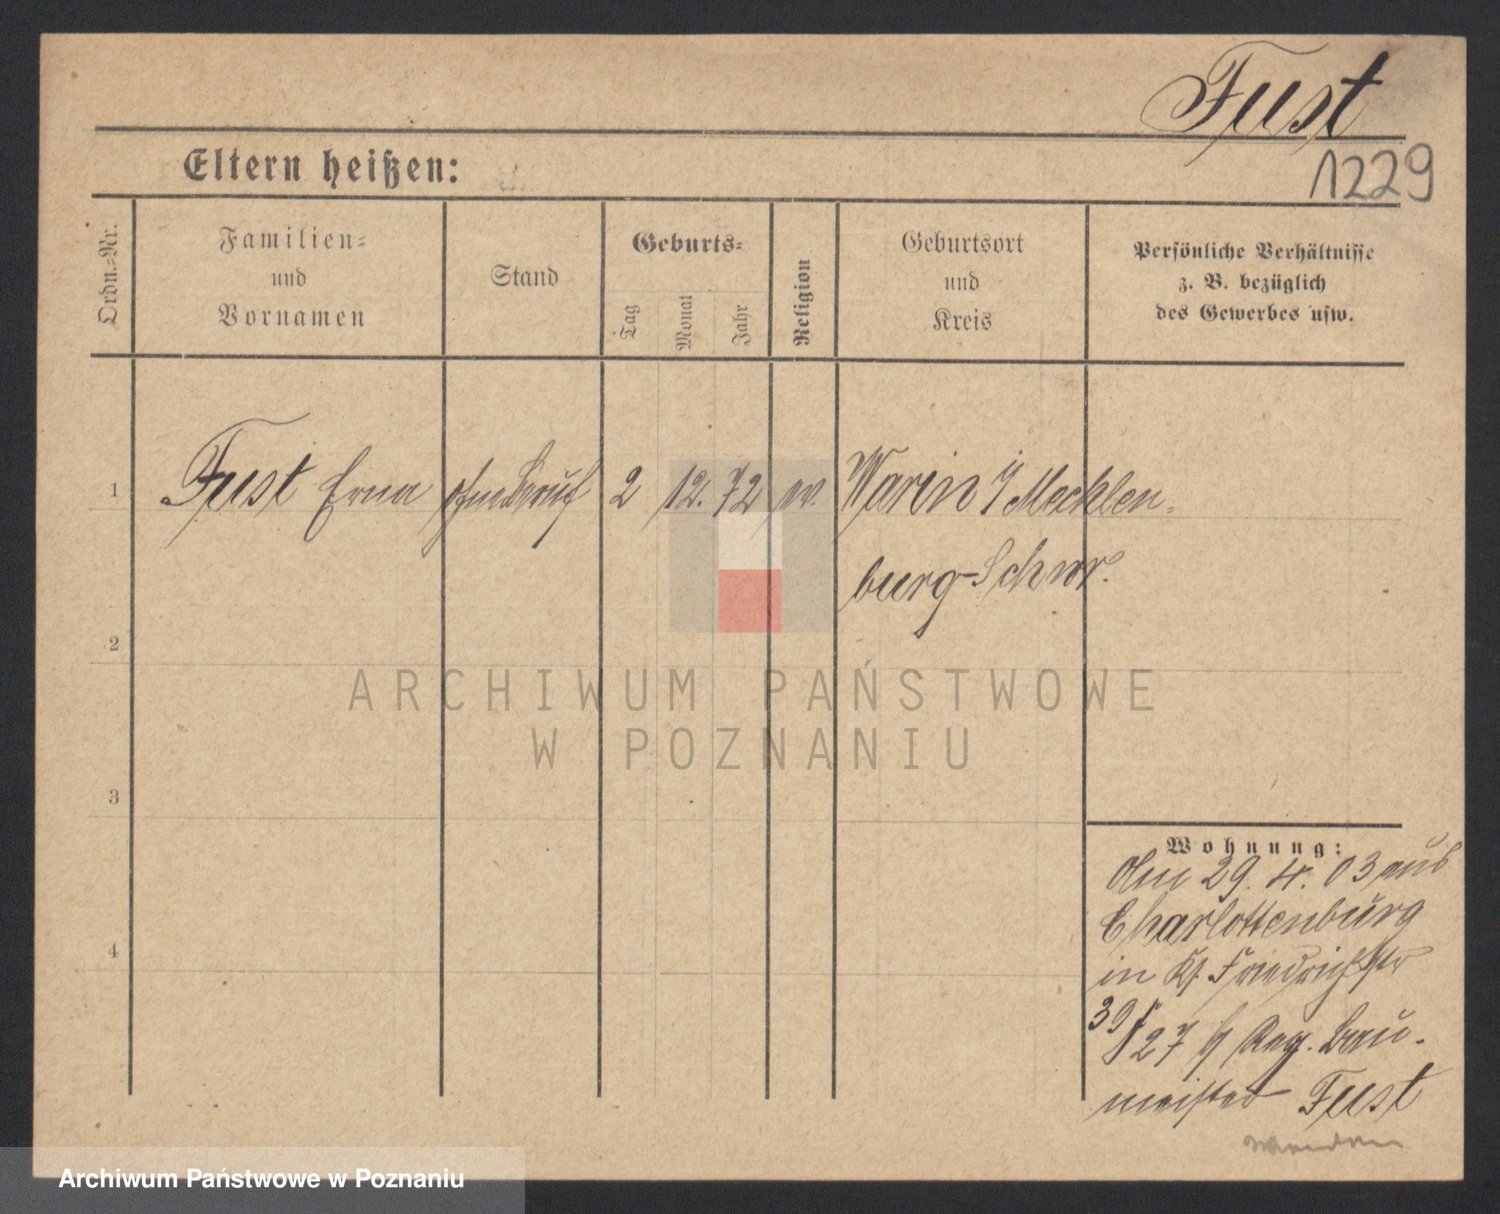 Fust
Eltern heißen:
1229
Ordn.-Nr.
Familien-
und
Vornamen
Stand
Geburts-
Tag
Monat
Jahr
Religion
Geburtsort
und
Kreis
Persönliche Verhältnisse
z. B. bezüglich
des Gewerbes usw.
1 Fust Erna ohne Beruf 2 12. 72 ev. Warin i/ Mecklen-
burg-Schwr.
2
ARCHIWUM PAŃSTWOWE
W POZNANIU
3
4
Wohnung:
29. 4. 03 aus
Charlottenburg
in Friedrichstr
39/27 b/ Reg. Bau-
meister Fust
Archiwum Państwowe w Poznaniu